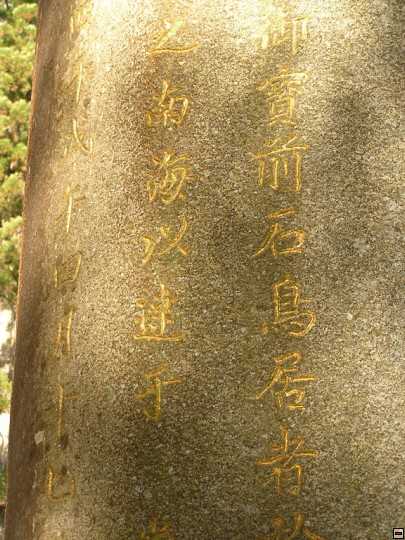 御寶前石鳥居者於
之南海以達于
戊午四月十七